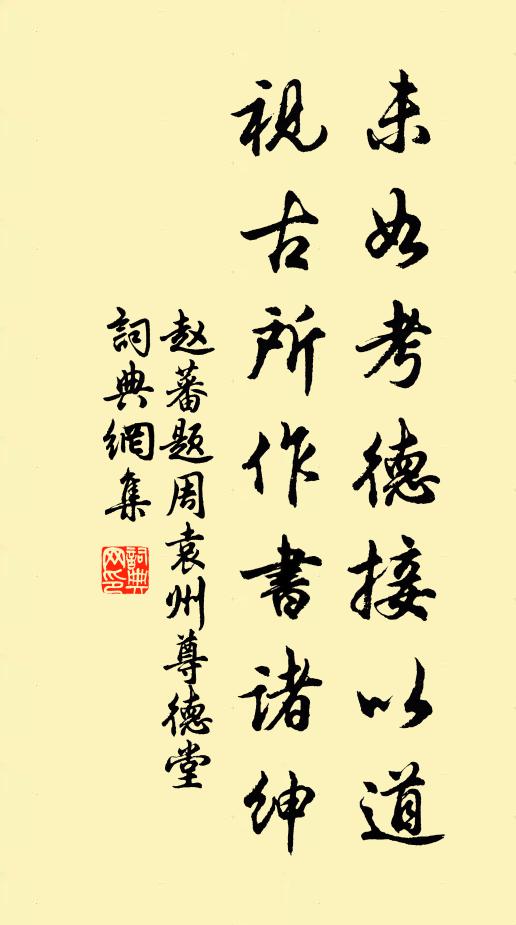 未如考德接以道
視古所作書諸紳
赵蕃题周袁州尊德堂
詞典網集
詞典网印